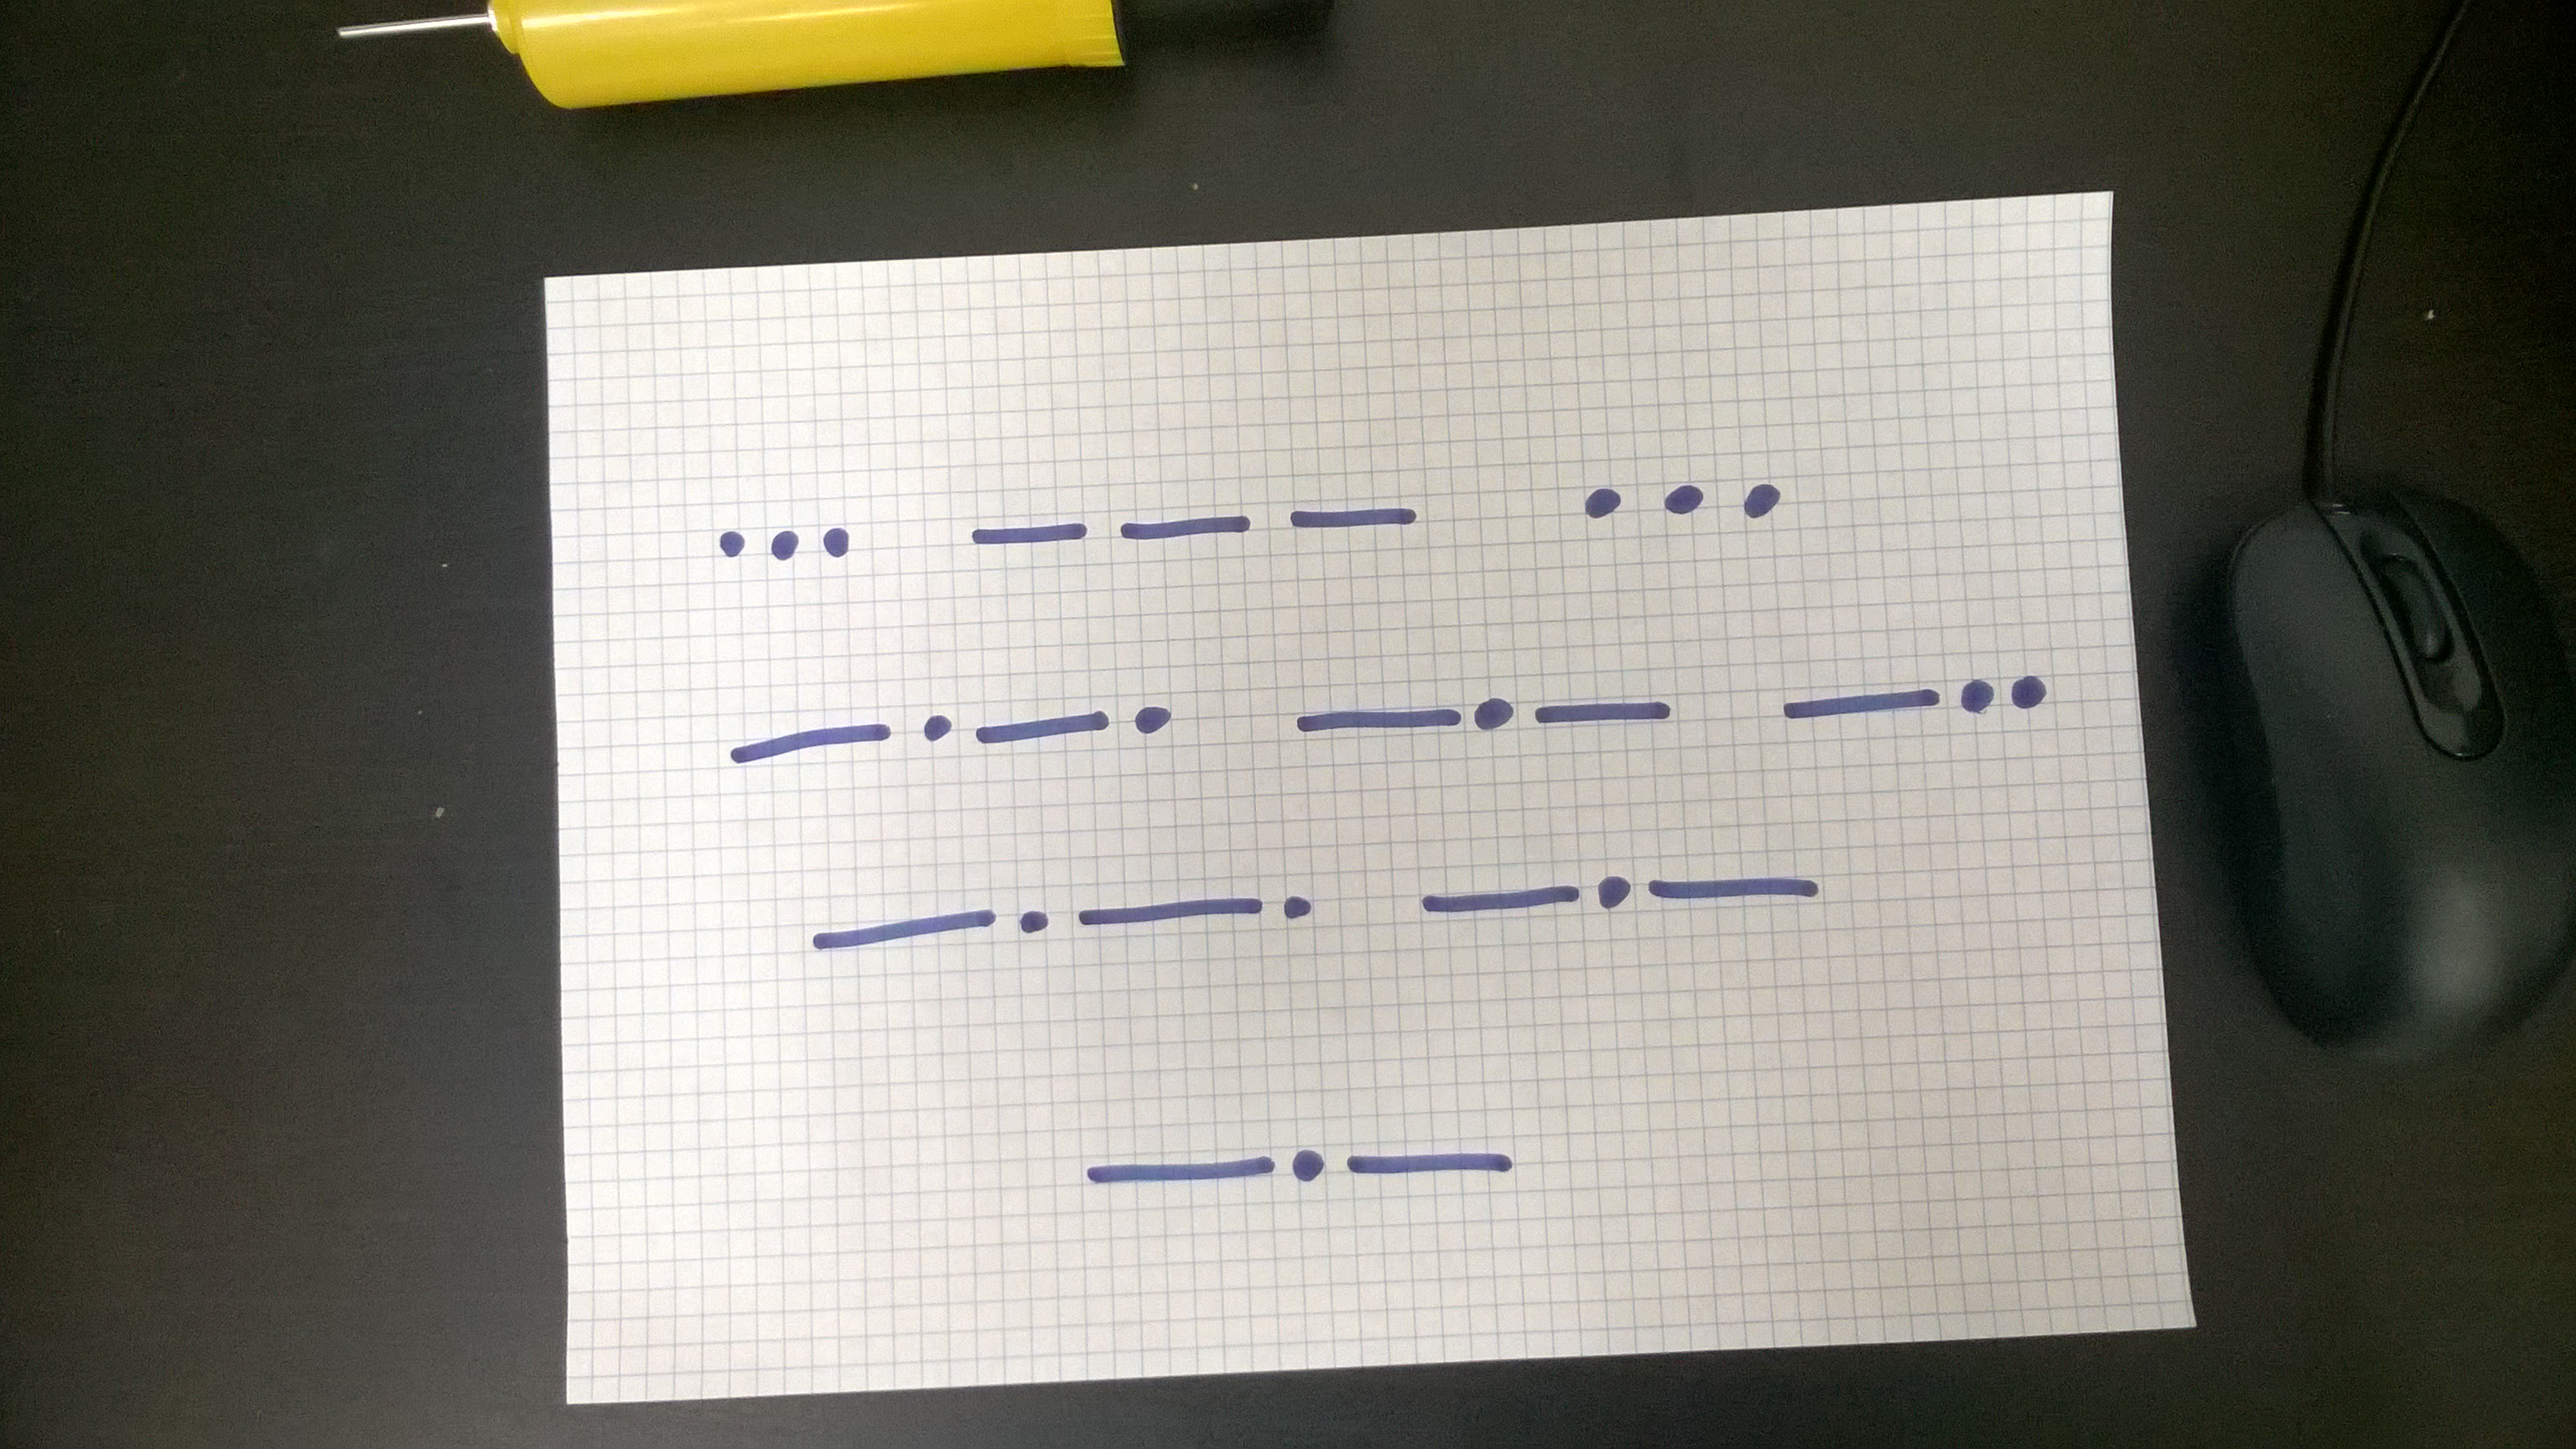 ... — — — ...
— . — . — . — — ..
— . — . — . —
— . —